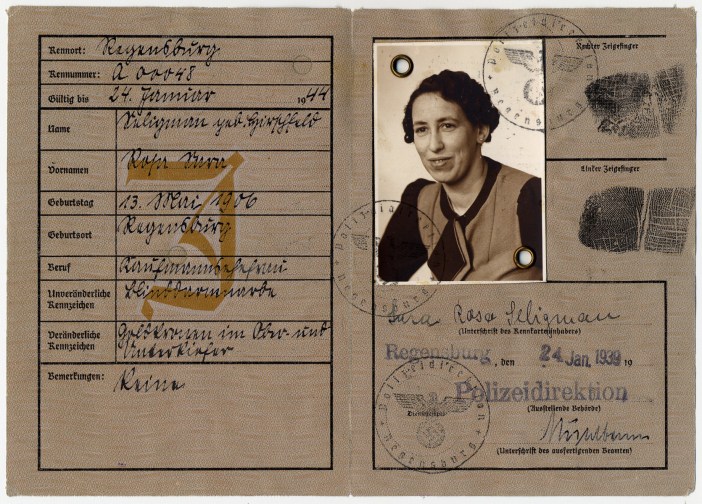 Kennort: Regensburg
Kennnummer: A 00048
Gültig bis 24. Januar 1944
Name Seligman geb. Hirschfeld
J
Vornamen Rosa Sara
Geburtstag 13. Mai 1906
Geburtsort Regensburg
Beruf Kaufmannsehefrau
Unveränderliche Kennzeichen Blinddarmnarbe
Veränderliche Kennzeichen Goldkronen im Ober- und
Unterkiefer
Bemerkungen: Keine
Polizeidirektion
Regensburg
Rechter Zeigefinger
Linker Zeigefinger
Polizeidirektion
Regensburg
Sara Rosa Seligman
(Unterschrift des Kennkarteninhabers)
Regensburg, den 24. Jan. 1939 19
Polizeidirektion
(Ausstellende Behörde)
Polizeidirektion
Regensburg
Dienststempel
(Unterschrift des ausfertigenden Beamten)